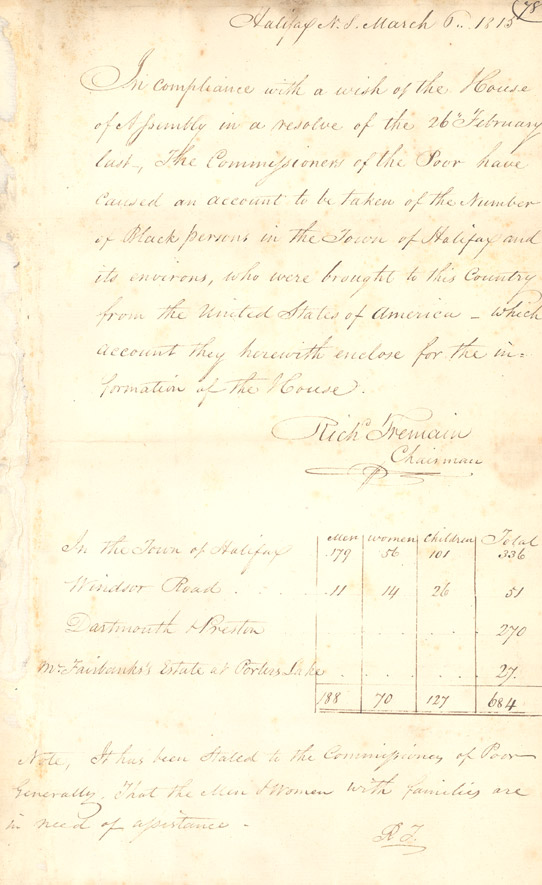 78
Halifax N. S. March 6.. 1815
In compliance with a wish of the House
of Assembly in a resolve of the 26th February
last, The Commissioners of the Poor have
caused an account to be taken of the Number
of Black persons in the Town of Halifax and
its environs, who were brought to this Country
from the United States of America – which
account they herewith enclose for the in=
formation of the House.
Richd Tremain
Chairman
Men Women Children Total
In the Town of Halifax 179 56 101 336
Windsor Road . . . . . 11 14 26 51
Dartmouth & Preston . . . . . . 270
Mr Fairbanks's Estate at Porters Lake . . . . . . 27.
188 70 127 684
Note, It has been Stated to the Commissioners of Poor
Generally, That the Men & Women with families are
in need of assistance –
R T.